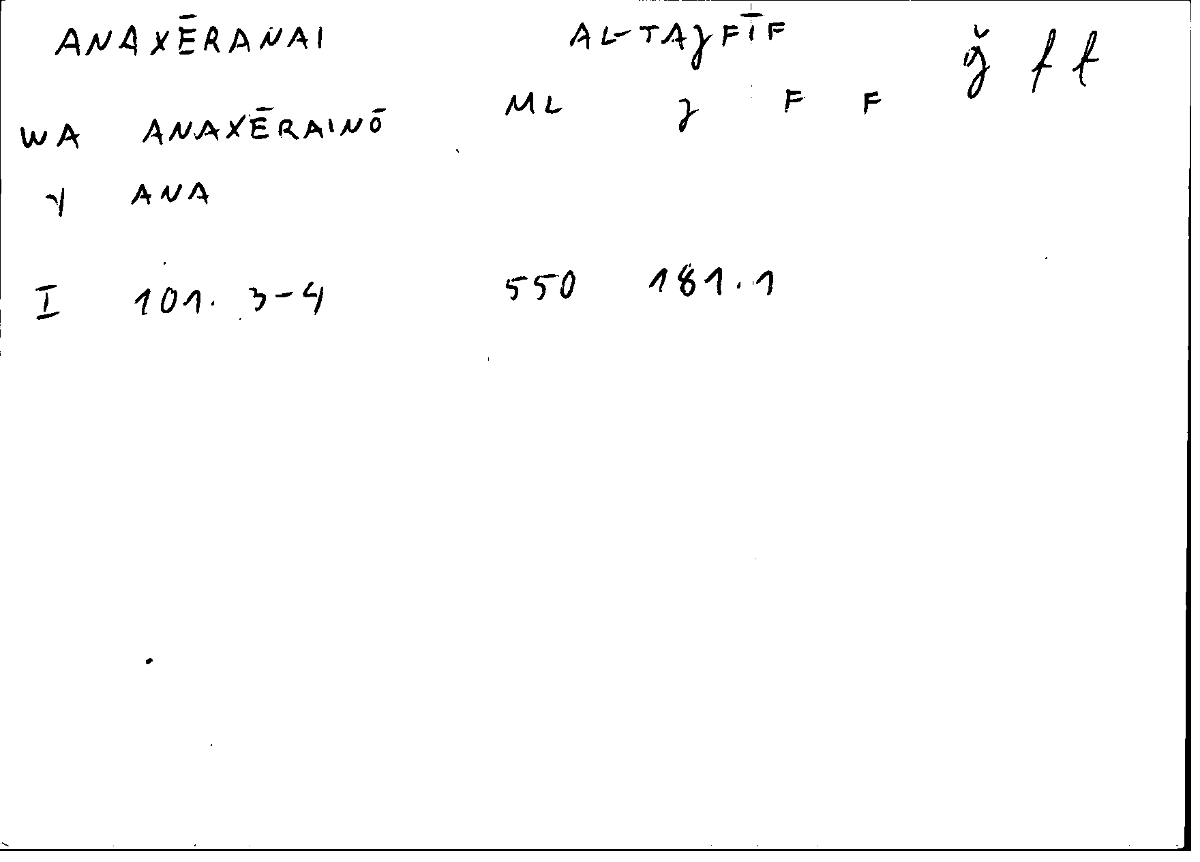 ANAXĒRANAI AL-TAȝFĪF ǧ f f
WA ANAXĒRAINŌ ML ȝ F F
γ ANA
I 101. 3-4 550 181.1